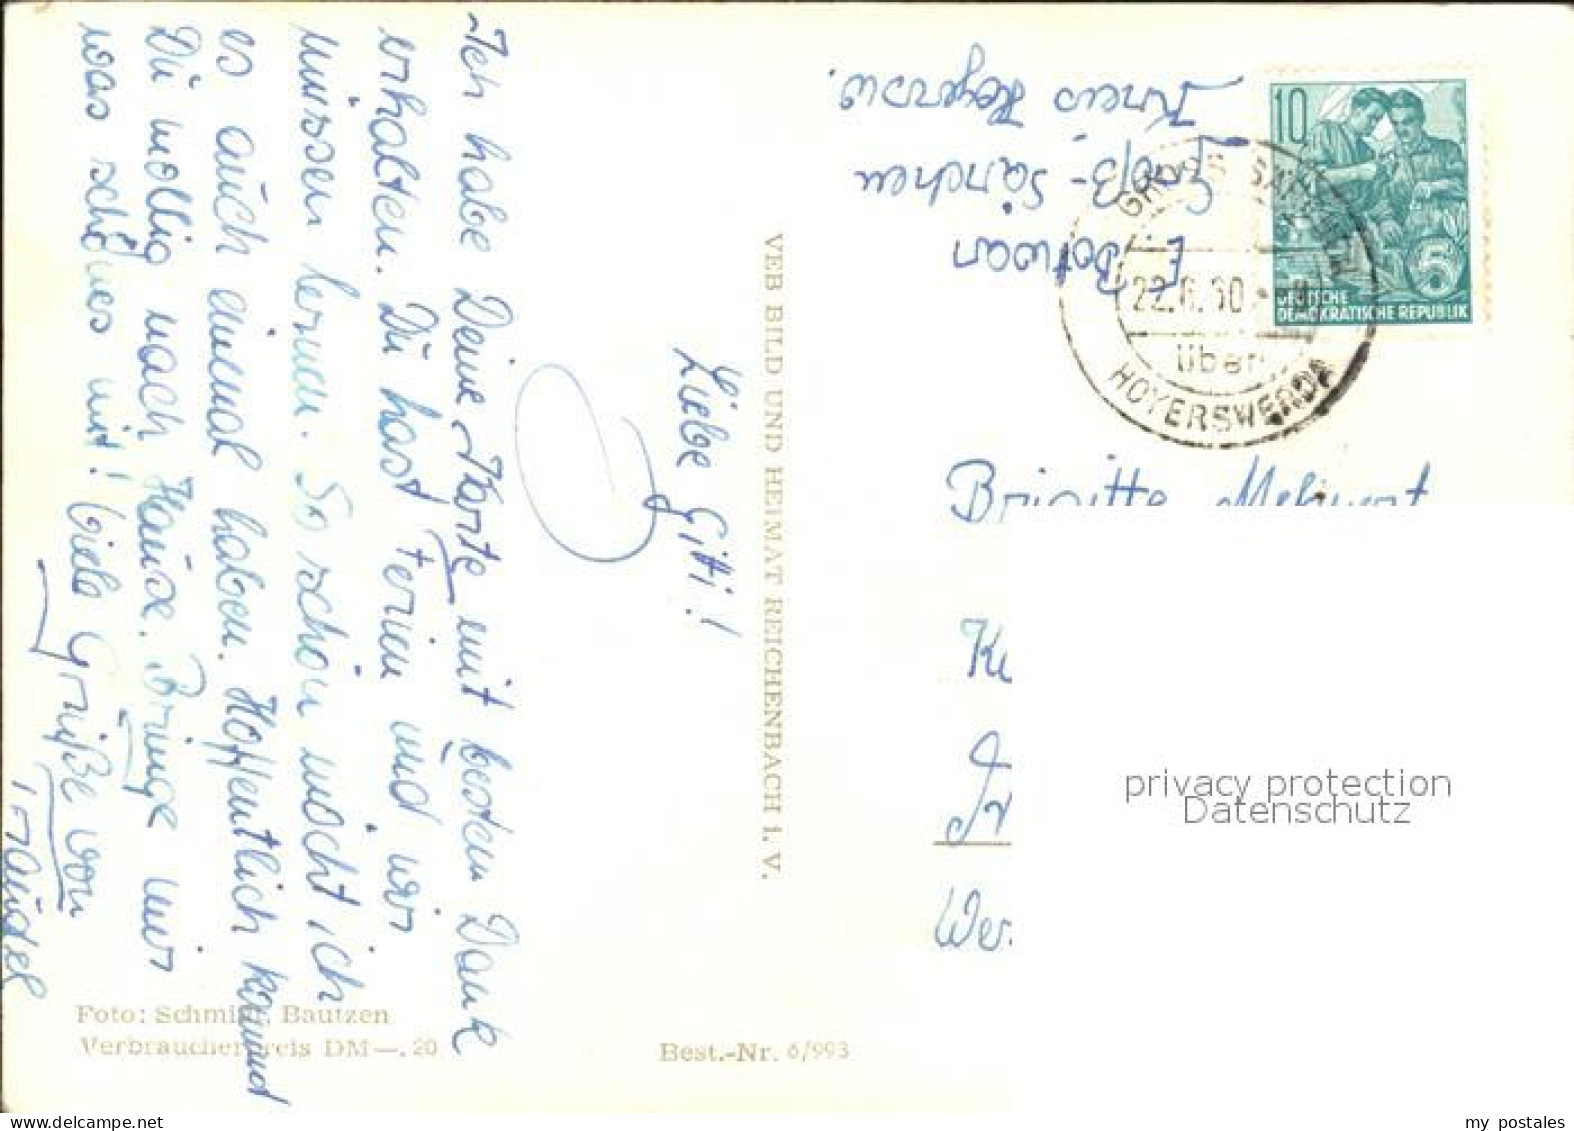 Liebe Gitti!
Ich habe Deine Karte mit bestem Dank
erhalten. Du hast Ferien und wir
müssen lernen. So schön möcht ich
es auch einmal haben. Hoffentlich kommst
Du mollig nach Hause. Bringe mir
was schönes mit! Viele Grüße von
Traudel
VEB BILD UND HEIMAT REICHENBACH i. V.
Foto: Schmidt, Bautzen
Verbraucherpreis DM —,20
Best.-Nr. 6/993
Groß-Särchen
Kreis Hoyersw.
10
5
DEUTSCHE
DEMOKRATISCHE REPUBLIK
GROSS SÄRCHEN
22.6.60
über
HOYERSWERDA
Brigitte
privacy protection
Datenschutz
my postales